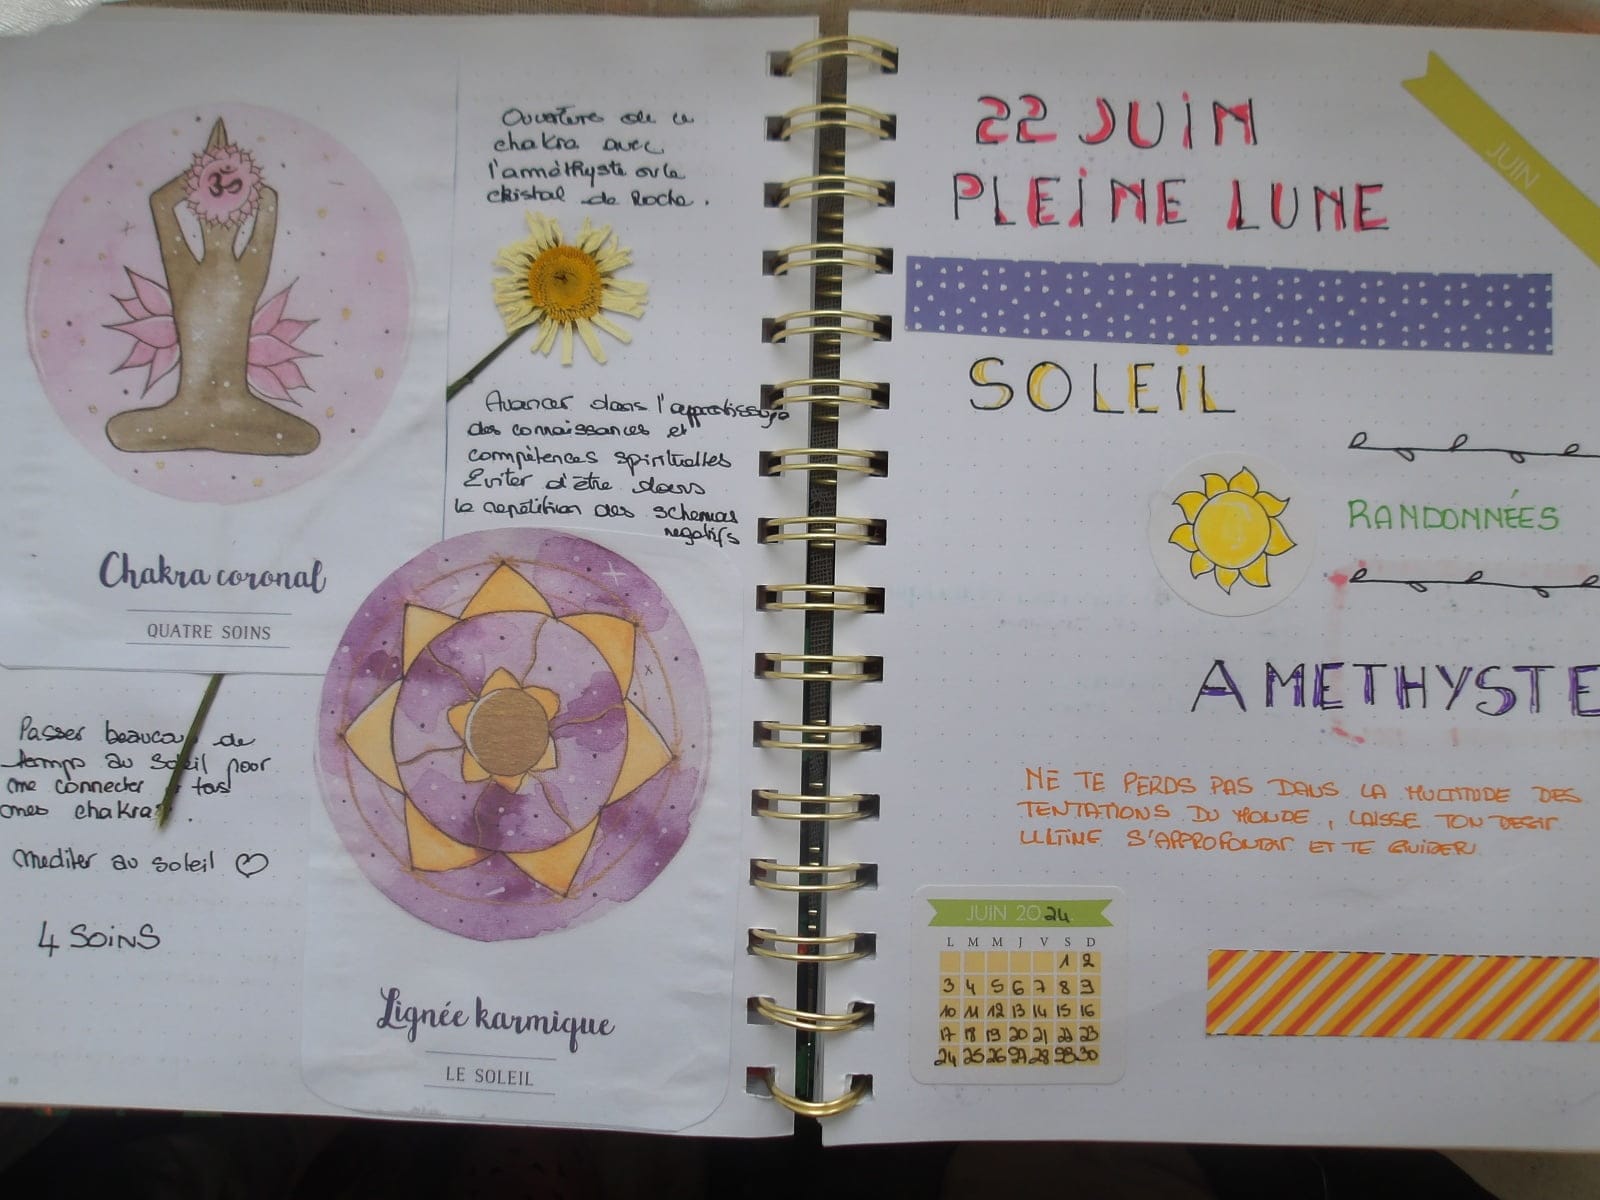 Ouverture de ce
chakra avec
l'améthyste ou le
cristal de Roche.
ॐ
Avancer dans l'apprentissage
des connaissances et
compétences spirituelles
Eviter d'être dans
la repétition des schemas
negatifs
Chakra coronal
QUATRE SOINS
Passer beaucou de
temps au soleil pour
me connecter tous
mes chakra
mediter au soleil ♡
4 SOINS
Lignée karmique
LE SOLEIL
22 JUIN
PLEINE LUNE
JUIN
SOLEIL
RANDONNÉES
AMETHYSTE
NE TE PERDS PAS DANS LA MULTITUDE DES
TENTATIONS DU MONDE, LAISSE TON DESIR
ULTIME S'APPROFONDIR ET TE GUIDER.
JUIN 2024
L M M J V S D
1 2
3 4 5 6 7 8 9
10 11 12 13 14 15 16
17 18 19 20 21 22 23
24 25 26 27 28 29 30